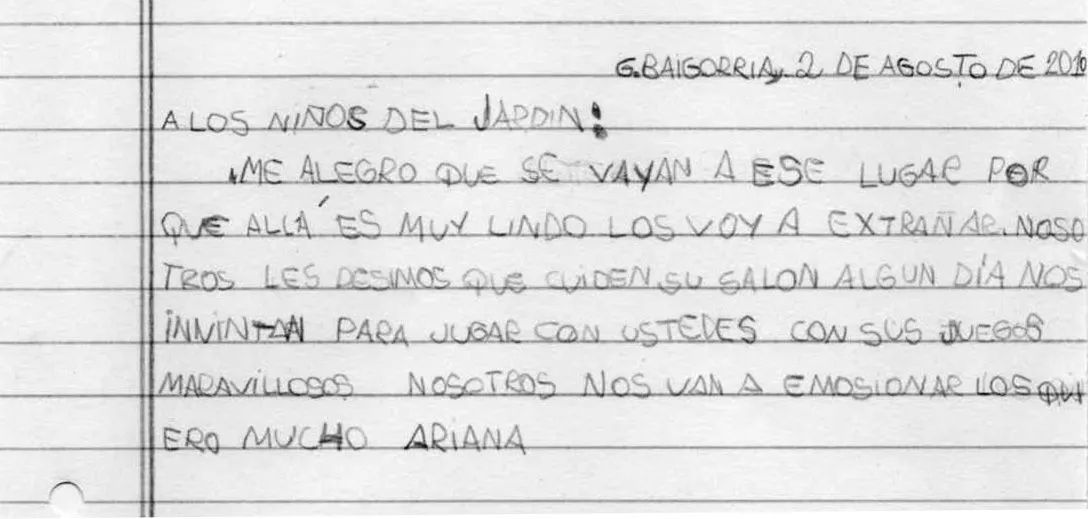 G. BAIGORRIA, 2 DE AGOSTO DE 2010
A LOS NIÑOS DEL JARDIN:
ME ALEGRO QUE SE VAYAN A ESE LUGAR POR
QUE ALLÁ ES MUY LINDO LOS VOY A EXTRAÑAR. NOSO
TROS LES DESIMOS QUE CUIDEN SU SALON ALGUN DÍA NOS
INVINTAN PARA JUGAR CON USTEDES CON SUS JUEGOS
MARAVILLOSOS NOSOTROS NOS VAN A EMOSIONAR LOS QUI
ERO MUCHO ARIANA